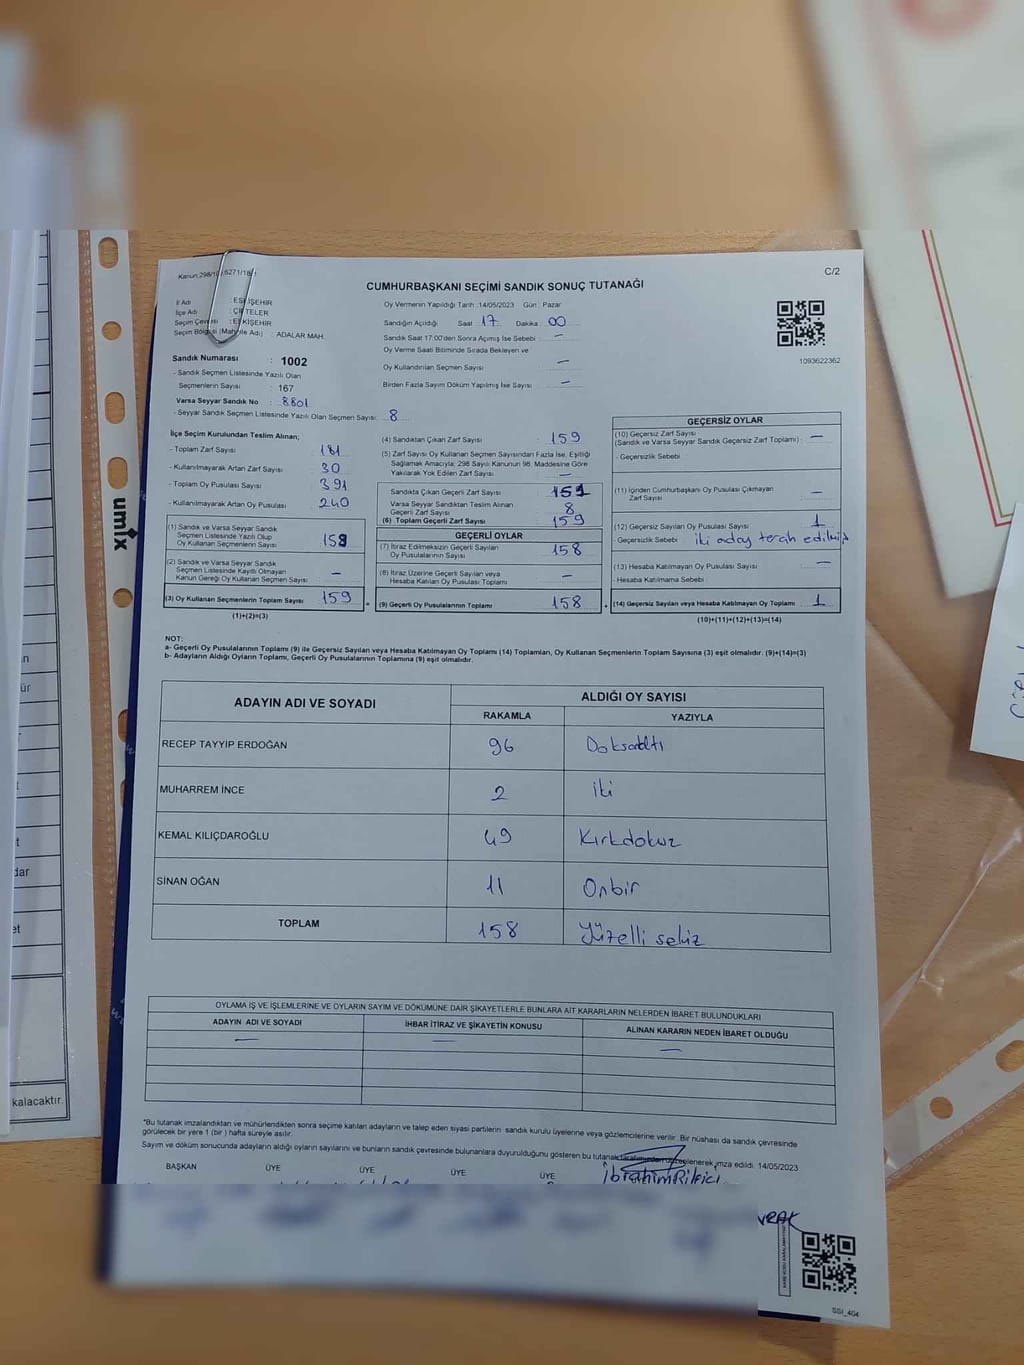 C/2
CUMHURBAŞKANI SEÇİMİ SANDIK SONUÇ TUTANAĞI
İl Adı : ESKİŞEHİR
İlçe Adı : ÇİFTELER
Seçim Çevresi : ESKİŞEHİR
Seçim Bölgesi (Mahalle Adı) : ADALAR MAH.
Oy Vermenin Yapıldığı Tarih : 14/05/2023 Gün : Pazar
Sandığın Açıldığı Saat 17 Dakika : 00
Sandık Saat 17:00'den Sonra Açımış İse Sebebi : —
Oy Verme Saati Bitiminde Sırada Bekleyen ve
Oy Kullandırılan Seçmen Sayısı : —
Birden Fazla Sayım Döküm Yapılmış İse Sayısı : —
1093622362
Sandık Numarası : 1002
- Sandık Seçmen Listesinde Yazılı Olan
Seçmenlerin Sayısı : 167
Varsa Seyyar Sandık No : 8801
- Seyyar Sandık Seçmen Listesinde Yazılı Olan Seçmen Sayısı: 8
İlçe Seçim Kurulundan Teslim Alınan;
- Toplam Zarf Sayısı : 181
- Kullanılmayarak Artan Zarf Sayısı : 30
- Toplam Oy Pusulası Sayısı : 391
- Kullanılmayarak Artan Oy Pusulası : 240
(1) Sandık ve Varsa Seyyar Sandık
Seçmen Listesinde Yazılı Olup
Oy Kullanan Seçmenlerin Sayısı : 159
(2) Sandık ve Varsa Seyyar Sandık
Seçmen Listesinde Kayıtlı Olmayan
Kanun Gereği Oy Kullanan Seçmen Sayısı : —
(3) Oy Kullanan Seçmenlerin Toplam Sayısı : 159
(1)+(2)=(3)
(4) Sandıktan Çıkan Zarf Sayısı : 159
(5) Zarf Sayısı Oy Kullanan Seçmen Sayısından Fazla İse, Eşitliği
Sağlamak Amacıyla; 298 Sayılı Kanunun 98. Maddesine Göre
Yakılarak Yok Edilen Zarf Sayısı : —
Sandıkta Çıkan Geçerli Zarf Sayısı : 151
Varsa Seyyar Sandıktan Teslim Alınan
Geçerli Zarf Sayısı : 8
(6) Toplam Geçerli Zarf Sayısı : 159
GEÇERLİ OYLAR
(7) İtiraz Edilmeksizin Geçerli Sayılan
Oy Pusulalarının Sayısı : 158
(8) İtiraz Üzerine Geçerli Sayılan veya
Hesaba Katılan Oy Pusulası Toplamı : —
(9) Geçerli Oy Pusulalarının Toplamı : 158
GEÇERSİZ OYLAR
(10) Geçersiz Zarf Sayısı
(Sandık ve Varsa Seyyar Sandık Geçersiz Zarf Toplamı) : —
- Geçersizlik Sebebi :
(11) İçinden Cumhurbaşkanı Oy Pusulası Çıkmayan
Zarf Sayısı : —
(12) Geçersiz Sayılan Oy Pusulası Sayısı : 1
- Geçersizlik Sebebi : iki aday tercih edilmiş
(13) Hesaba Katılmayan Oy Pusulası Sayısı : —
- Hesaba Katılmama Sebebi :
(14) Geçersiz Sayılan veya Hesaba Katılmayan Oy Toplamı : 1
(10)+(11)+(12)+(13)=(14)
NOT:
a- Geçerli Oy Pusulalarının Toplamı (9) ile Geçersiz Sayılan veya Hesaba Katılmayan Oy Toplamı (14) Toplamları, Oy Kullanan Seçmenlerin Toplam Sayısına (3) eşit olmalıdır. (9)+(14)=(3)
b- Adayların Aldığı Oyların Toplamı, Geçerli Oy Pusulalarının Toplamına (9) eşit olmalıdır.
ADAYIN ADI VE SOYADI ALDIĞI OY SAYISI
RAKAMLA YAZIYLA
RECEP TAYYİP ERDOĞAN 96 Doksanaltı
MUHARREM İNCE 2 iki
KEMAL KILIÇDAROĞLU 49 Kırkdokuz
SİNAN OĞAN 11 Onbir
TOPLAM 158 Yüzelli sekiz
OYLAMA İŞ VE İŞLEMLERİNE VE OYLARIN SAYIM VE DÖKÜMÜNE DAİR ŞİKAYETLERLE BUNLARA AİT KARARLARIN NELERDEN İBARET BULUNDUKLARI
ADAYIN ADI VE SOYADI İHBAR İTİRAZ VE ŞİKAYETİN KONUSU ALINAN KARARIN NEDEN İBARET OLDUĞU
— — —
*Bu tutanak imzalandıktan ve mühürlendikten sonra seçime katılan adayların ve talep eden siyasi partilerin sandık kurulu üyelerine veya gözlemcilerine verilir. Bir nüshası da sandık çevresinde
görülecek bir yere 1 (bir) hafta süreyle asılır.
Sayım ve döküm sonucunda adayların aldığı oyların sayılarını ve bunların sandık çevresinde bulunanlara duyurulduğunu gösteren bu tutanak tarafımızdan düzenlenerek imza edildi. 14/05/2023
BAŞKAN ÜYE ÜYE ÜYE ÜYE
İbrahim
SSI_404
umix
kalacaktır.